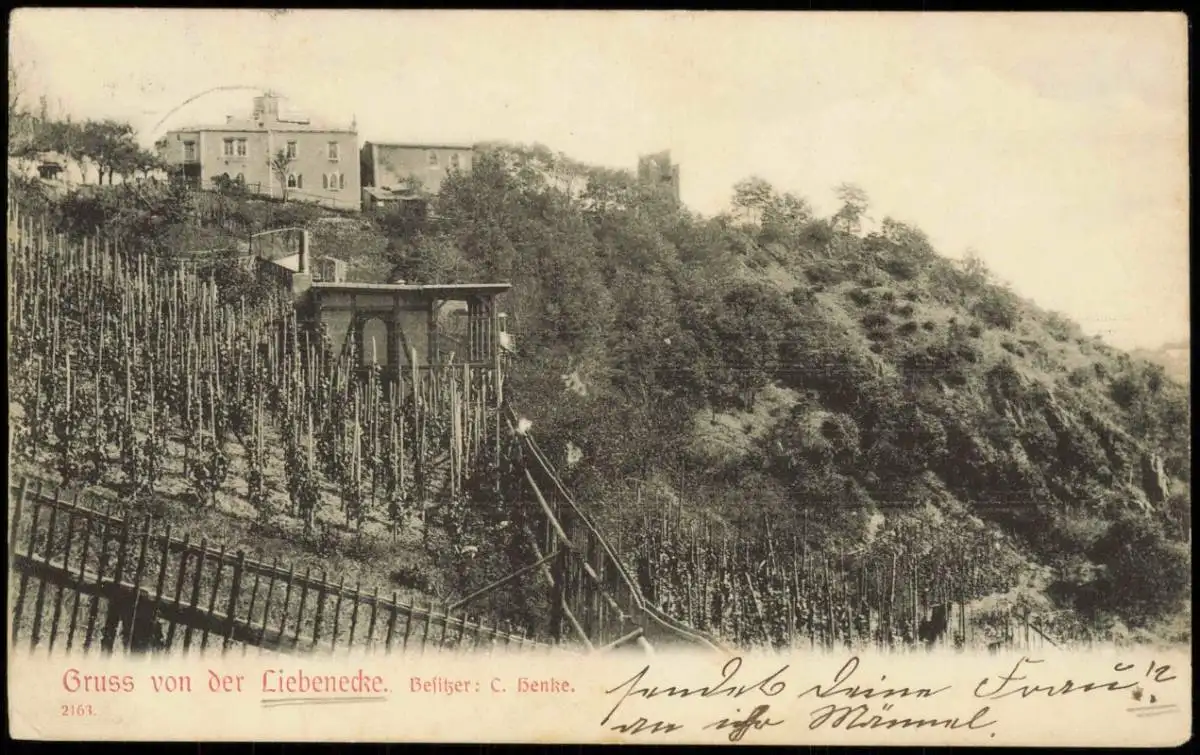 Gruss von der Liebenecke. Besitzer: C. Henke.
2163.
sendet Deine Frau!
an ihr Männel.